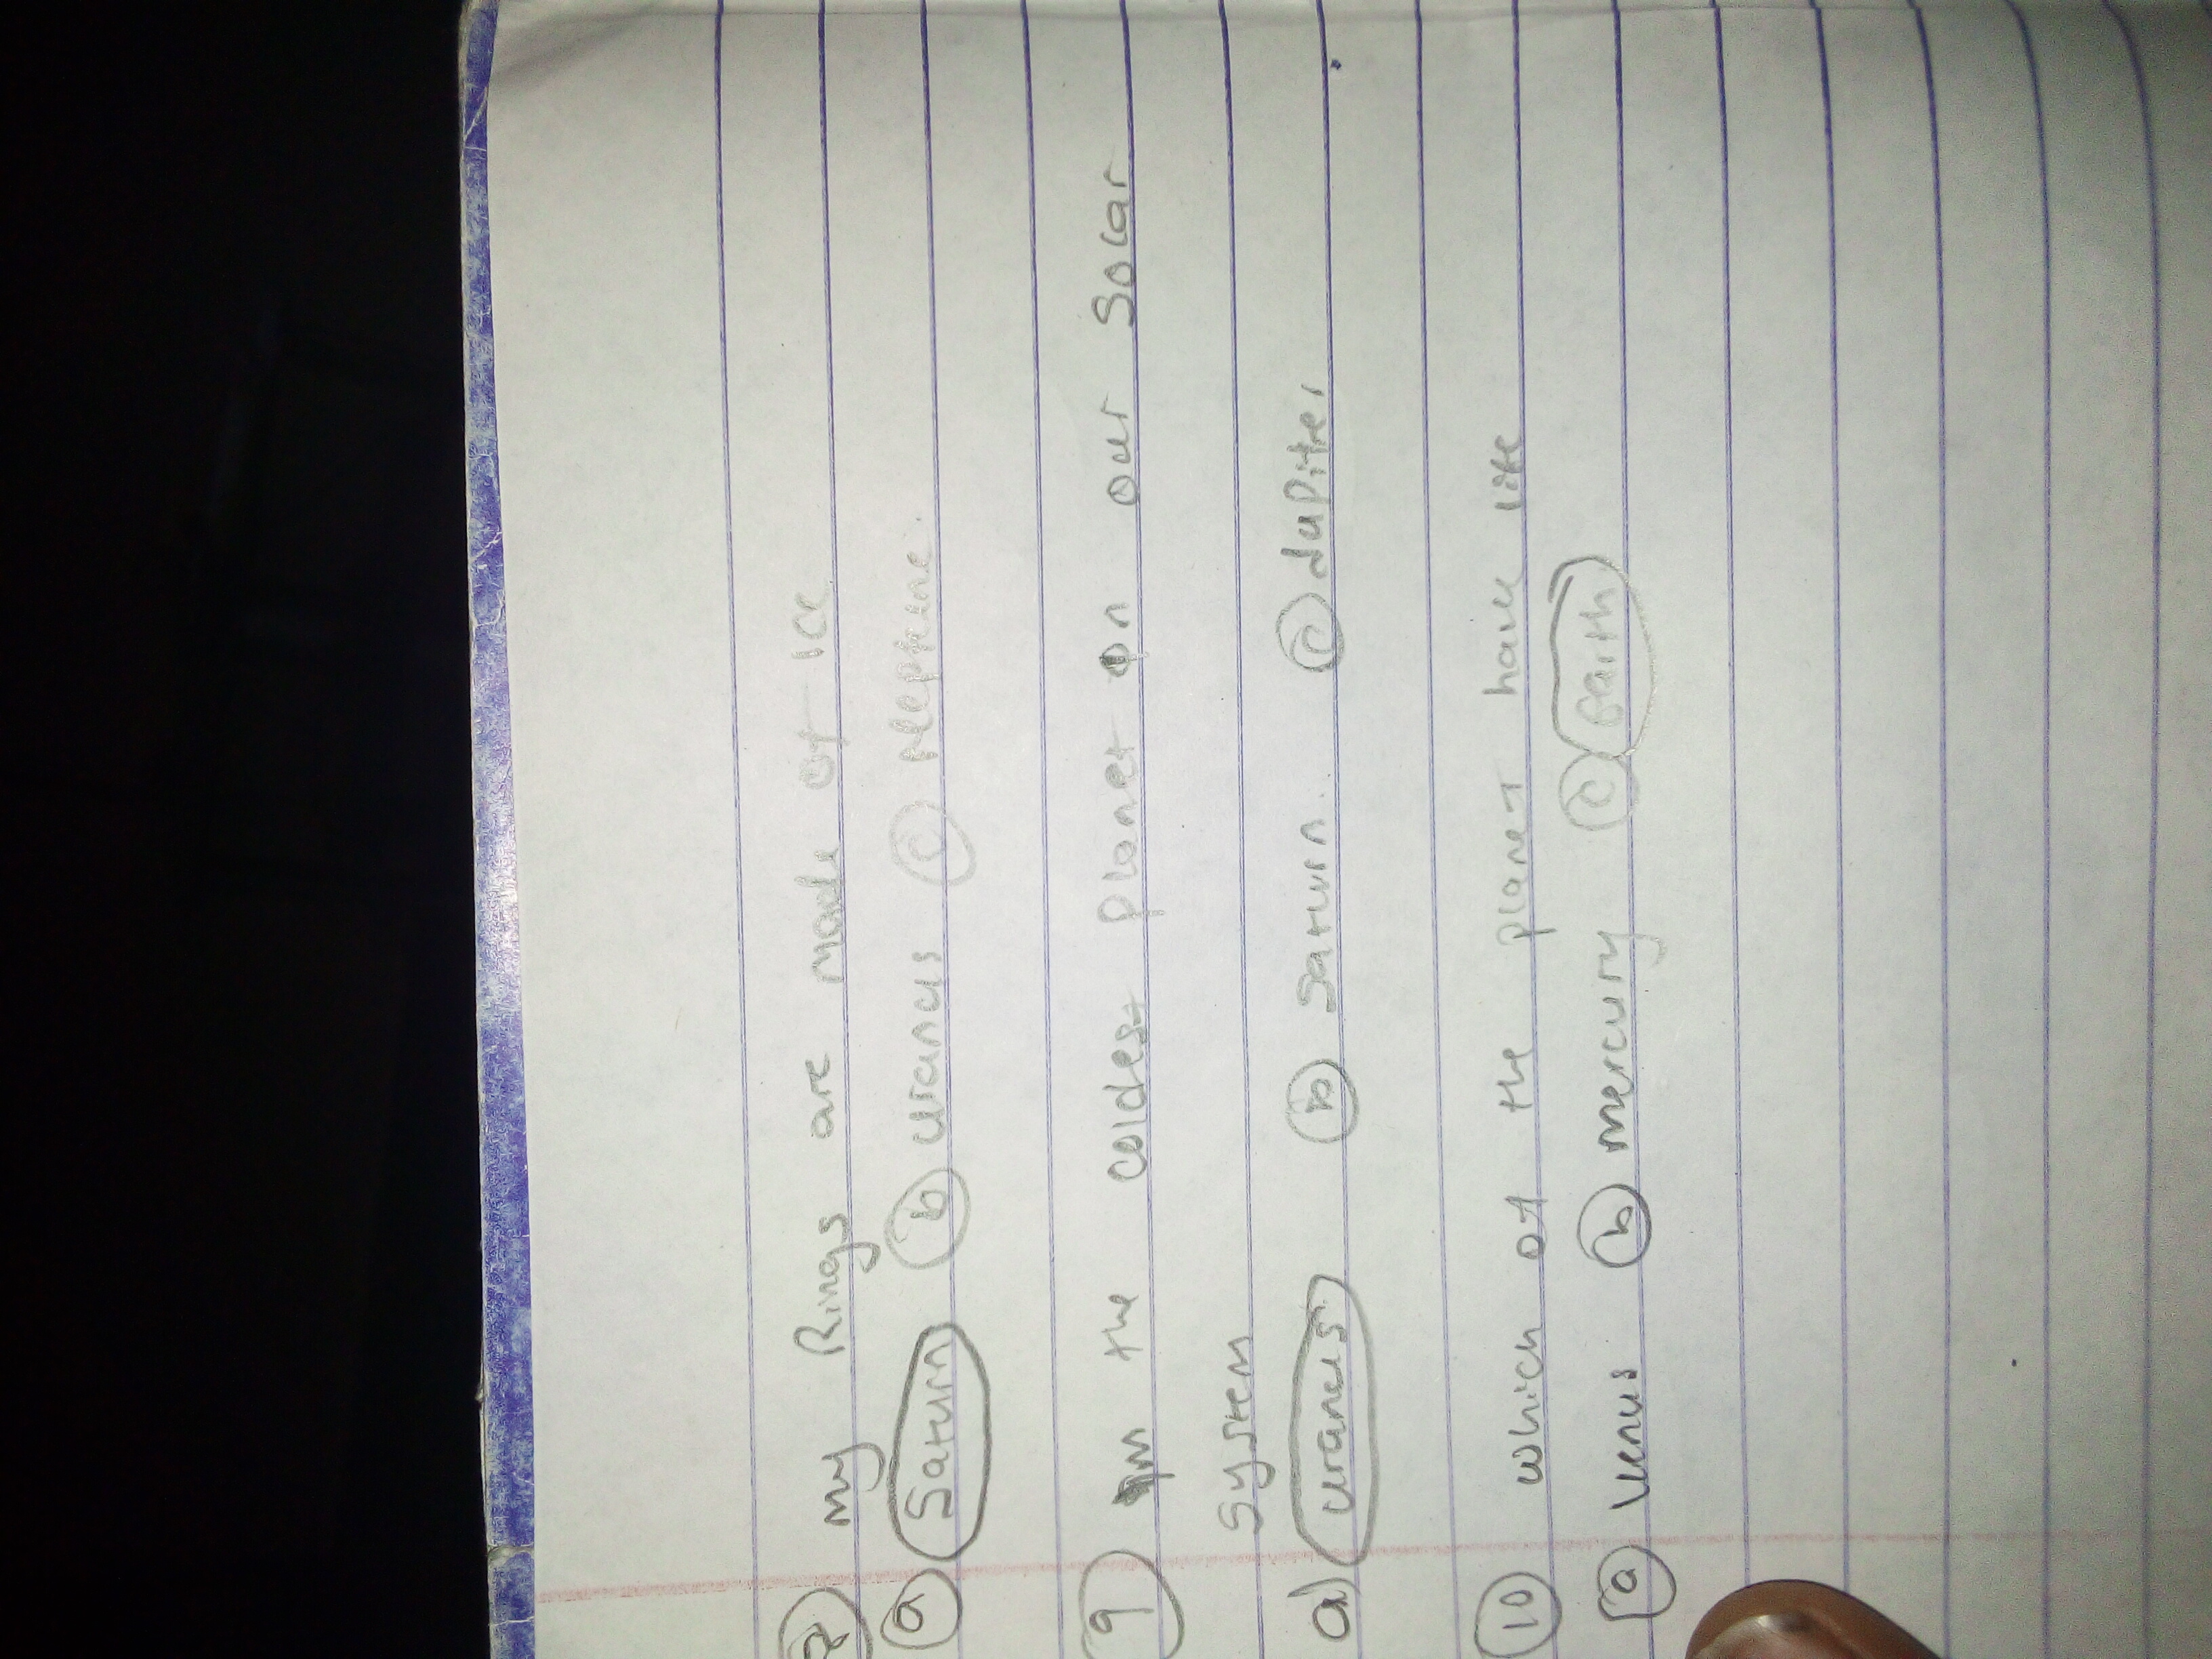 8 my Rings are made of ice
a Saturn b uranus c Neptune.
9 Im the coldest planet on our Socar
System
a) uranus b Saturn. c Jupiter
10 which of the planet have life
a Venus b mercury c Earth